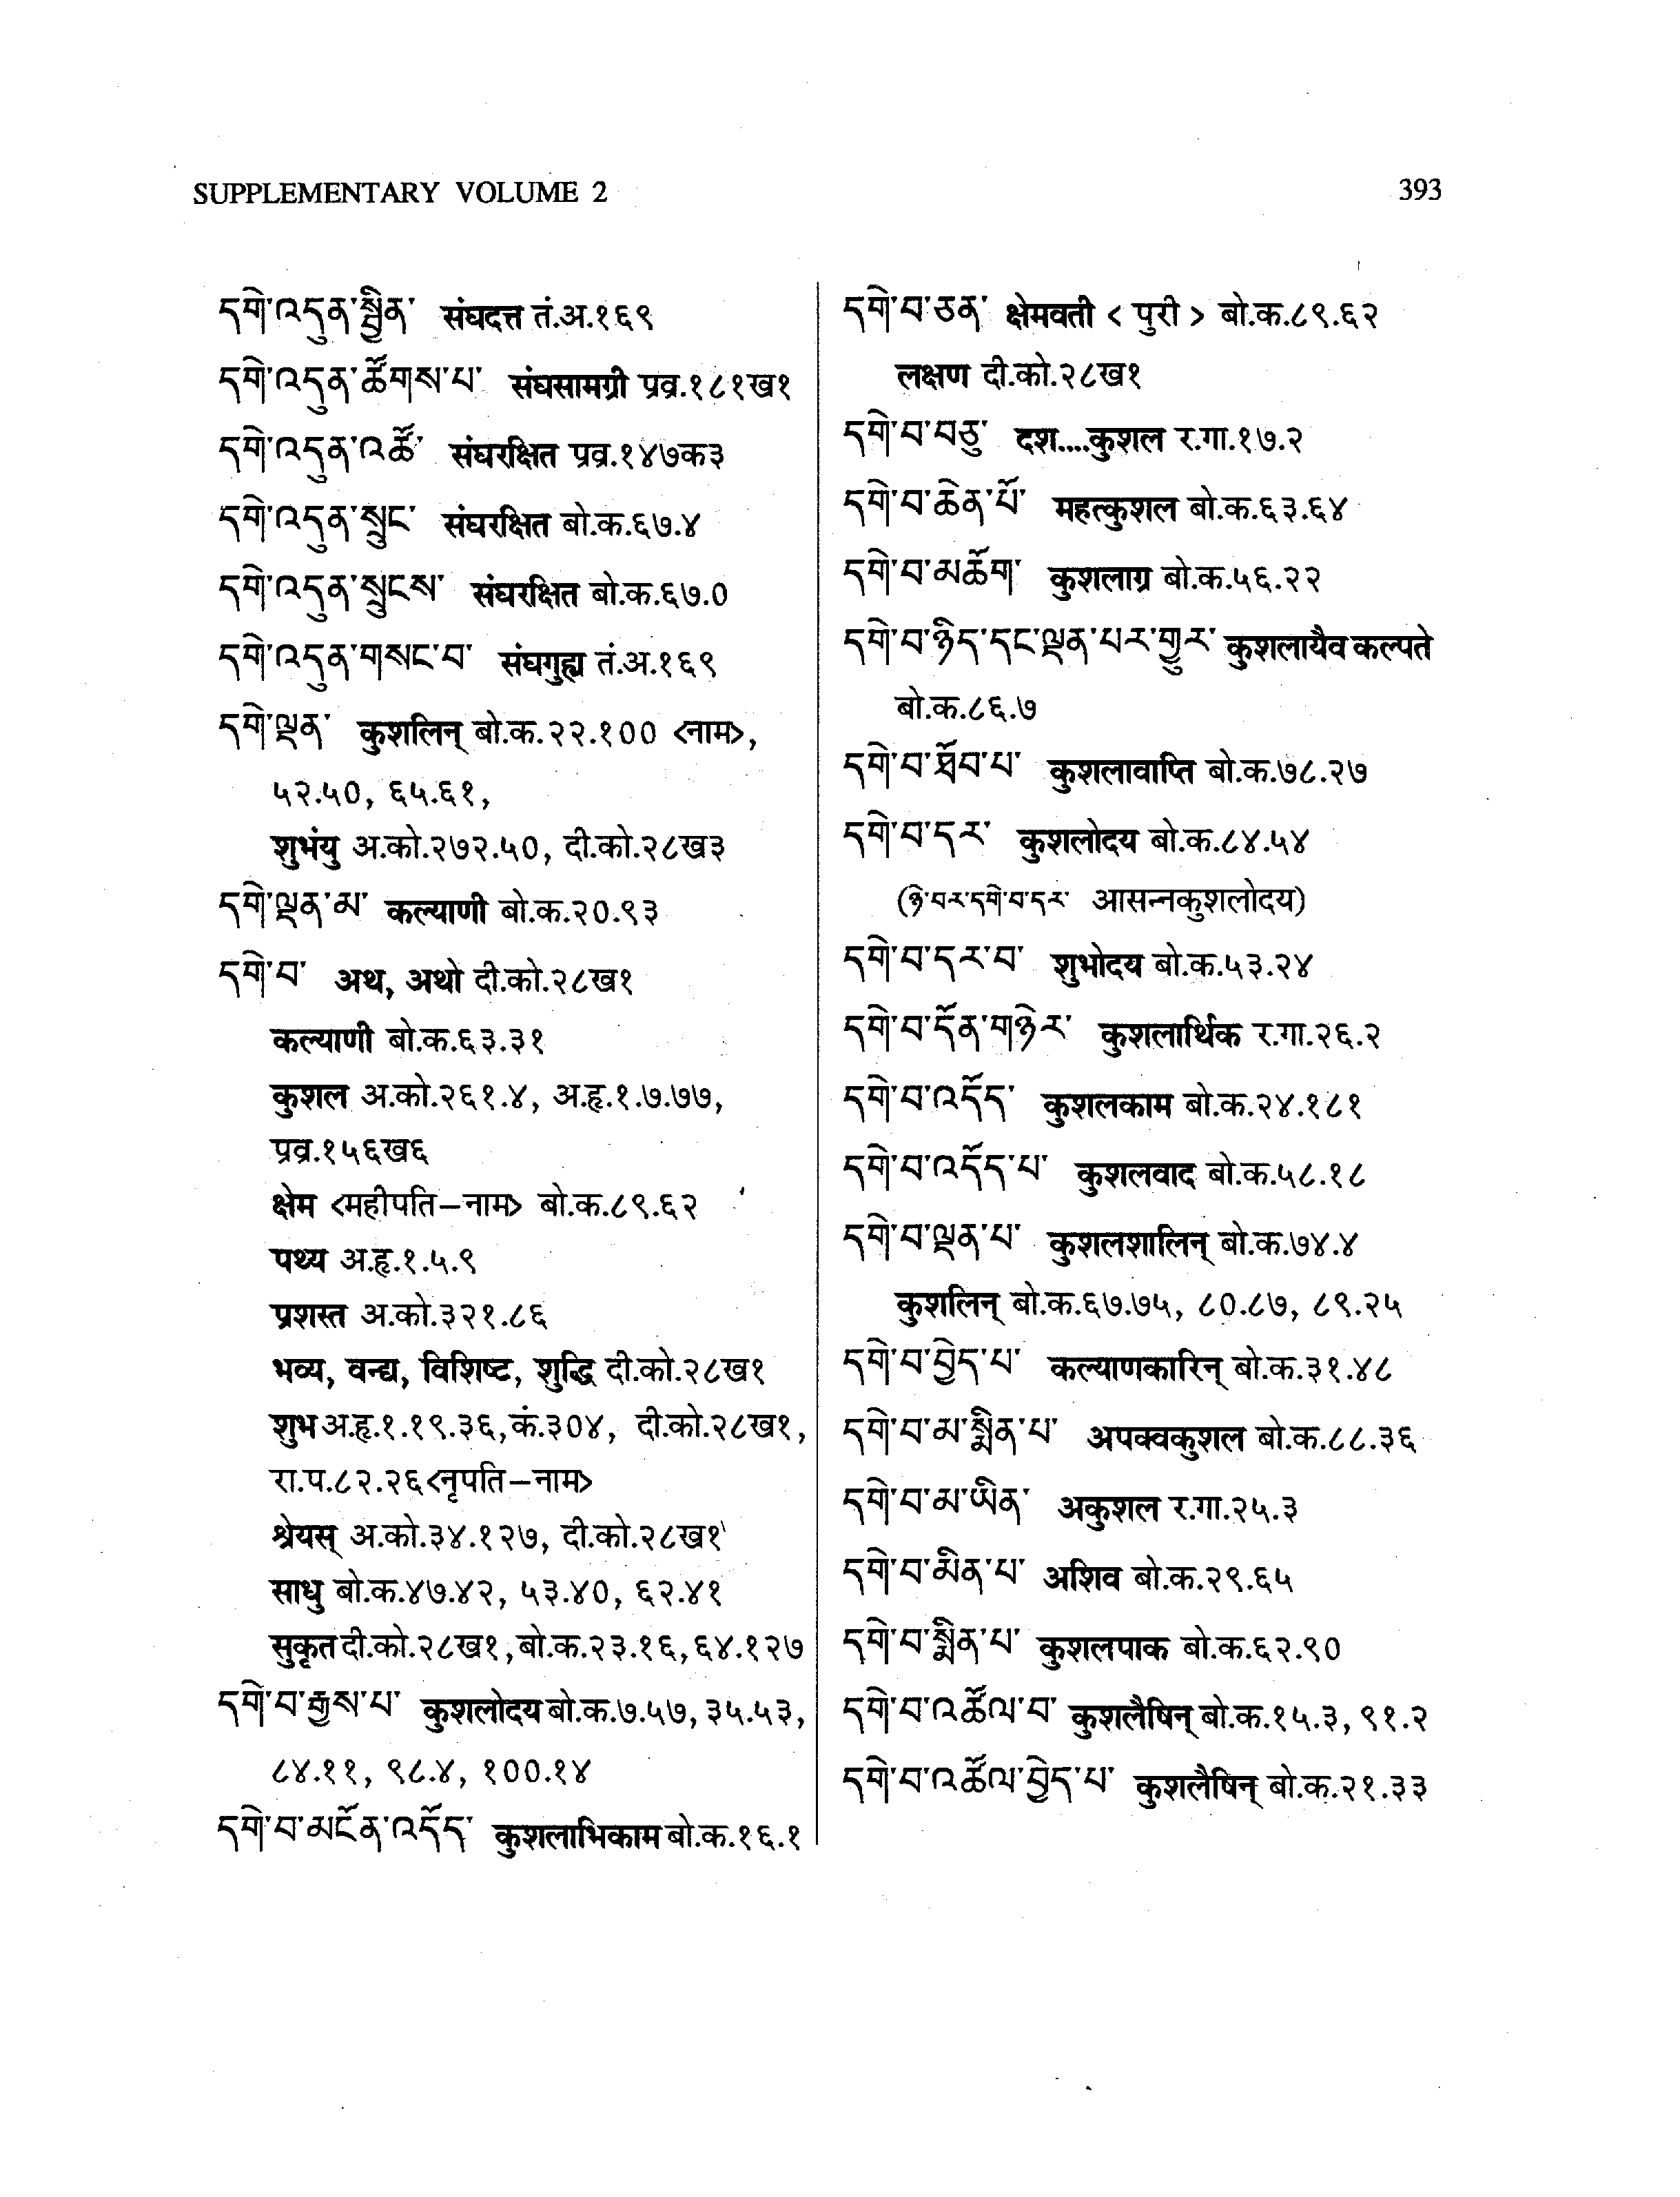 SUPPLEMENTARY VOLUME 2 393
དགེ་འདུན་སྦྱིན་ संघदत्त तं.अ.१६९
དགེ་འདུན་ཚོགས་པ་ संघसामग्री प्रव्र.१८१ख१
དགེ་འདུན་འཚོ་ संघरक्षित प्रव्र.१४७क३
དགེ་འདུན་སྲུང་ संघरक्षित बो.क.६७.४
དགེ་འདུན་སྲུངས་ संघरक्षित बो.क.६७.0
དགེ་འདུན་གསང་བ་ संघगुह्य तं.अ.१६९
དགེ་ལྡན་ कुशलिन् बो.क.२२.१00 <नाम>,
५२.५0, ६५.६१,
शुभंयु अ.को.२७२.५0, दी.को.२८ख३
དགེ་ལྡན་མ་ कल्याणी बो.क.२0.९३
དགེ་བ་ अथ, अथो दी.को.२८ख१
कल्याणी बो.क.६३.३१
कुशल अ.को.२६१.४, अ.हृ.१.७.७७,
प्रव्र.१५६ख६
क्षेम <महीपति–नाम> बो.क.८९.६२
पथ्य अ.हृ.१.५.९
प्रशस्त अ.को.३२१.८६
भव्य, वन्द्य, विशिष्ट, शुद्धि दी.को.२८ख१
शुभ अ.हृ.१.१९.३६, कं.३0४, दी.को.२८ख१,
रा.प.८२.२६<नृपति–नाम>
श्रेयस् अ.को.३४.१२७, दी.को.२८ख१
साधु बो.क.४७.४२, ५३.४0, ६२.४१
सुकृत दी.को.२८ख१, बो.क.२३.१६, ६४.१२७
དགེ་བ་རྒྱས་པ་ कुशलोदय बो.क.७.५७, ३५.५३,
८४.११, ९८.४, १00.१४
དགེ་བ་མངོན་འདོད་ कुशलाभिकाम बो.क.१६.१
དགེ་བ་ཅན་ क्षेमवती < पुरी > बो.क.८९.६२
लक्षण दी.को.२८ख१
དགེ་བ་བཅུ་ दश....कुशल र.गा.१७.२
དགེ་བ་ཆེན་པོ་ महत्कुशल बो.क.६३.६४
དགེ་བ་མཆོག་ कुशलाग्र बो.क.५६.२२
དགེ་བ་ཉིད་དང་ལྡན་པར་གྱུར་ कुशलायैव कल्पते
बो.क.८६.७
དགེ་བ་ཐོབ་པ་ कुशलावाप्ति बो.क.७८.२७
དགེ་བ་དར་ कुशलोदय बो.क.८४.५४
(ཉེ་བར་དགེ་བ་དར་ आसन्नकुशलोदय)
དགེ་བ་དར་བ་ शुभोदय बो.क.५३.२४
དགེ་བ་དོན་གཉེར་ कुशलार्थिक र.गा.२६.२
དགེ་བ་འདོད་ कुशलकाम बो.क.२४.१८१
དགེ་བ་འདོད་པ་ कुशलवाद बो.क.५८.१८
དགེ་བ་ལྡན་པ་ कुशलशालिन् बो.क.७४.४
कुशलिन् बो.क.६७.७५, ८0.८७, ८९.२५
དགེ་བ་བྱེད་པ་ कल्याणकारिन् बो.क.३१.४८
དགེ་བ་མ་སྨིན་པ་ अपक्वकुशल बो.क.८८.३६
དགེ་བ་མ་ཡིན་ अकुशल र.गा.२५.३
དགེ་བ་མིན་པ་ अशिव बो.क.२९.६५
དགེ་བ་སྨིན་པ་ कुशलपाक बो.क.६२.९0
དགེ་བ་འཚོལ་བ་ कुशलैषिन् बो.क.१५.३, ९१.२
དགེ་བ་འཚོལ་བྱེད་པ་ कुशलैषिन् बो.क.२१.३३